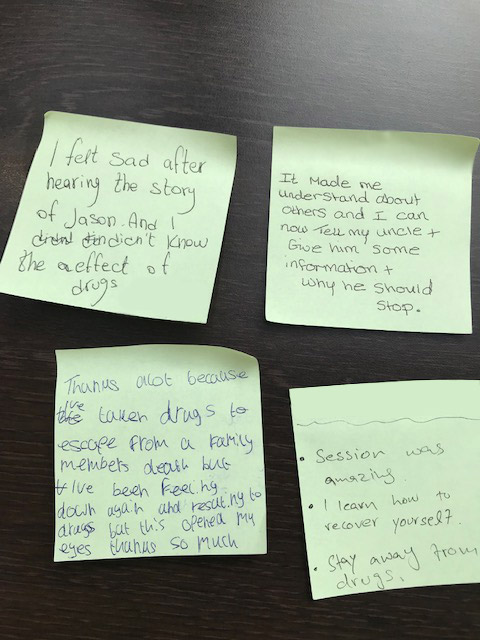 I felt sad after
hearing the story
of Jason. And I
didn't know
the effect of
drugs
It Made me
understand about
others and I can
now Tell my uncle +
Give him some
information +
why he should
stop.
Thanks alot because
I've taken drugs to
escape from a family
members death but
I've been feeling
down again and resulting to
drugs but this opened my
eyes thanks so much
• Session was
amazing.
• I learn how to
recover yourself.
• Stay away from
drugs.